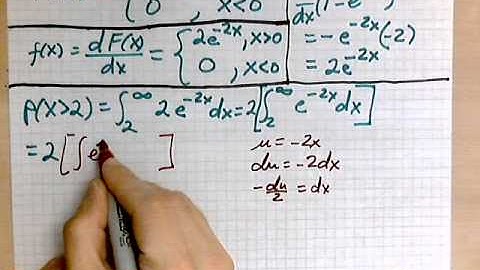 0 , x<0
d/dx (1-e^-2x
f(x) = dF(x)/dx = { 2e^-2x, x>0
0 , x<0
= -e^-2x(-2)
= 2e^-2x
P(X>2) = ∫_2^∞ 2e^-2x dx = 2[∫_2^∞ e^-2x dx]
= 2[-∫e ]
u = -2x
du = -2dx
-du/2 = dx